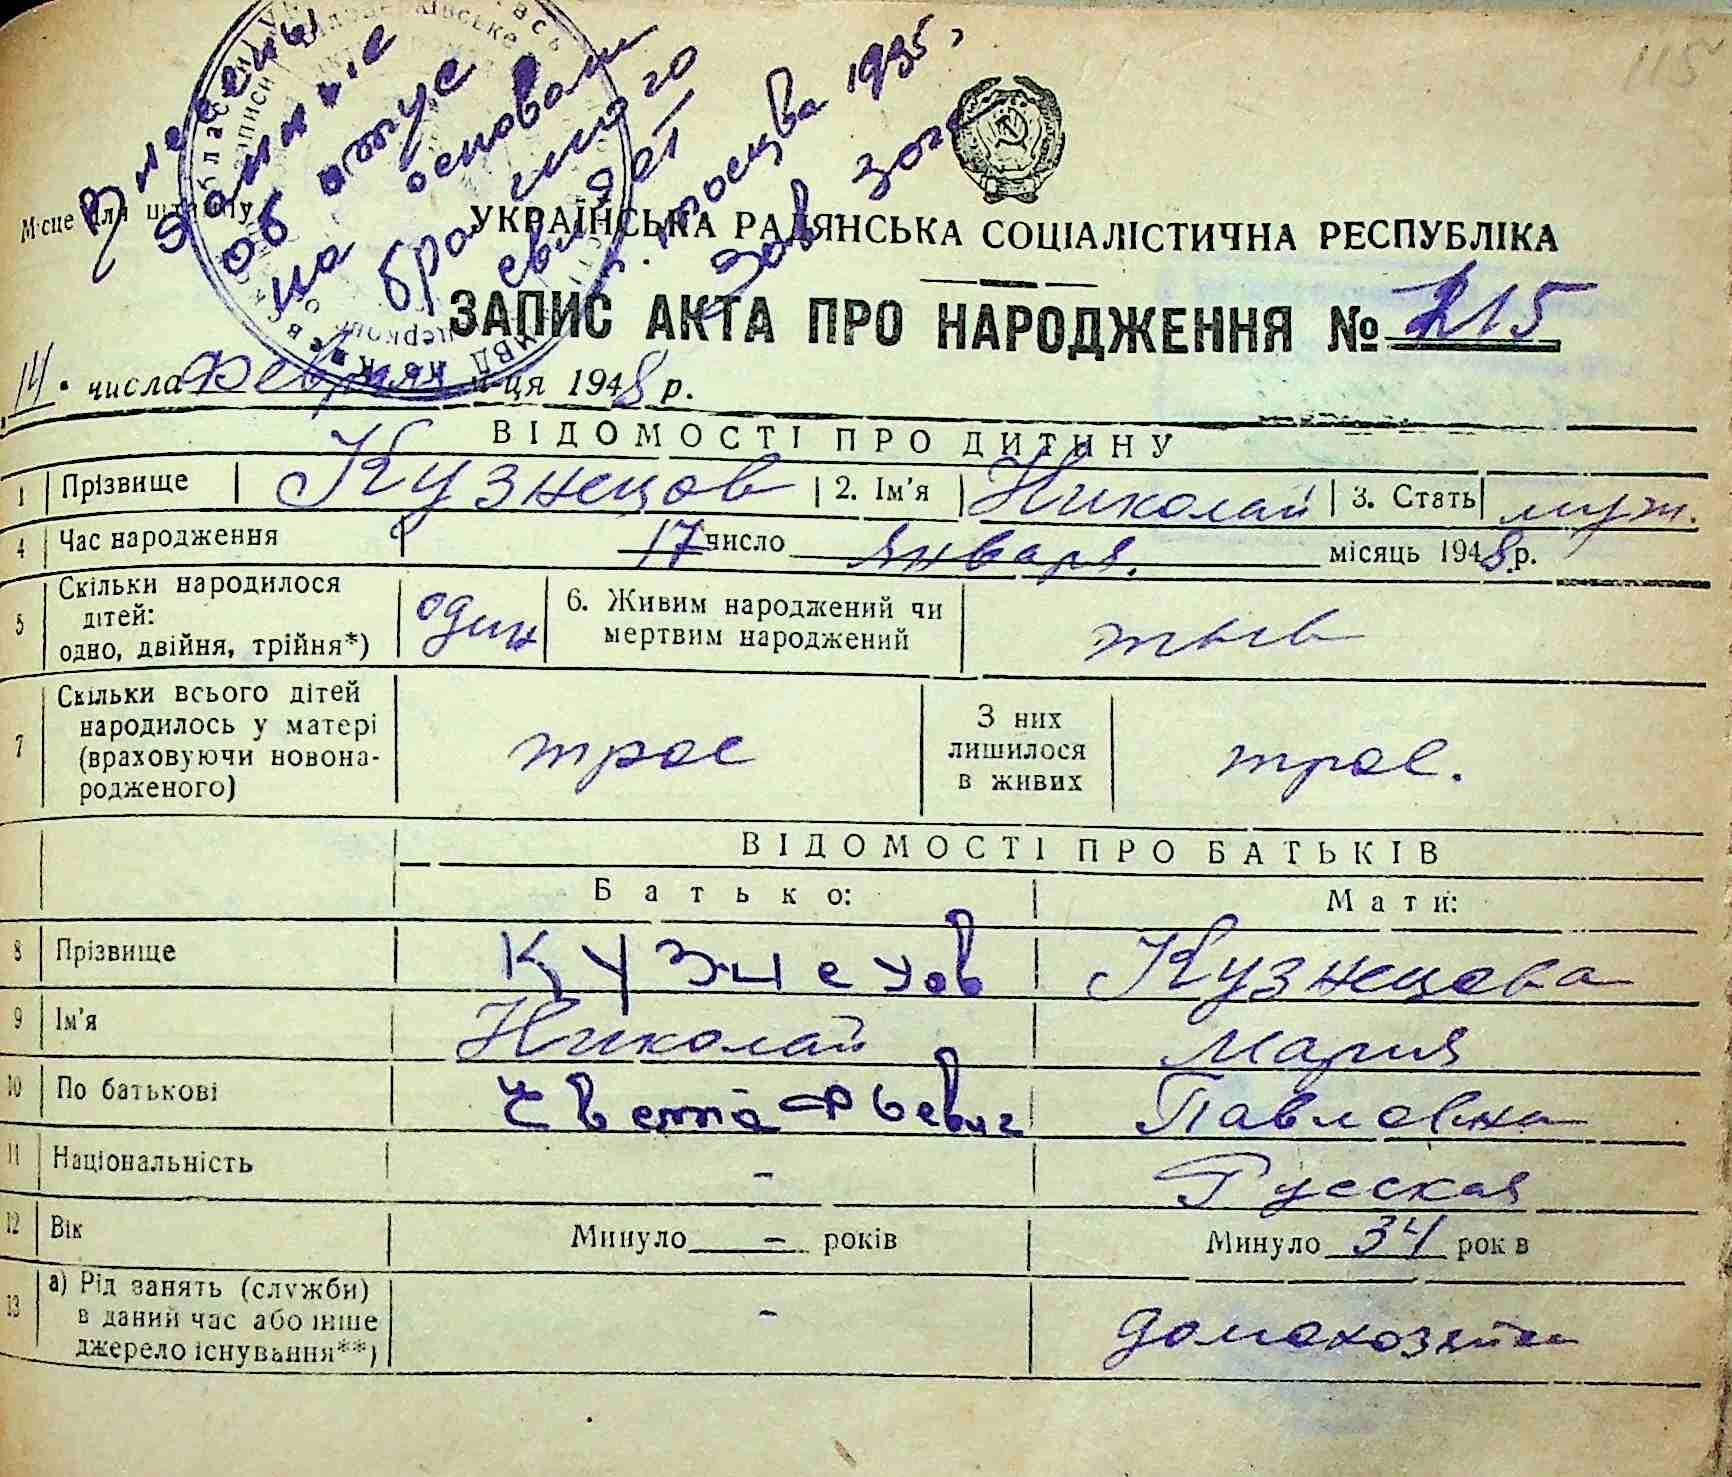 115
Внесены
данные
об отце
на основании
брачного
свид. от
1935 г.
Місце для штампу
УКРАЇНСЬКА РАДЯНСЬКА СОЦІАЛІСТИЧНА РЕСПУБЛІКА
ЗАПИС АКТА ПРО НАРОДЖЕННЯ № 215
14 числа Февраля м-ця 1948 р.
ВІДОМОСТІ ПРО ДИТИНУ
1 Прізвище Кузнецов 2. Ім'я Николай 3. Стать муж.
4 Час народження 17 число января. місяць 1948 р.
5 Скільки народилося дітей: одно, двійня, трійня*) один 6. Живим народжений чи мертвим народжений жыв
7 Скільки всього дітей народилось у матері (враховуючи новонародженого) трое З них лишилося в живих трое.
ВІДОМОСТІ ПРО БАТЬКІВ
Батько: Мати:
8 Прізвище Кузнецов Кузнецова
9 Ім'я Николай Мария
10 По батькові Павловна
11 Національність - Русская
12 Вік Минуло - років Минуло 34 рок в
13 а) Рід занять (служби) в даний час або інше джерело існування**) - домохозяйка